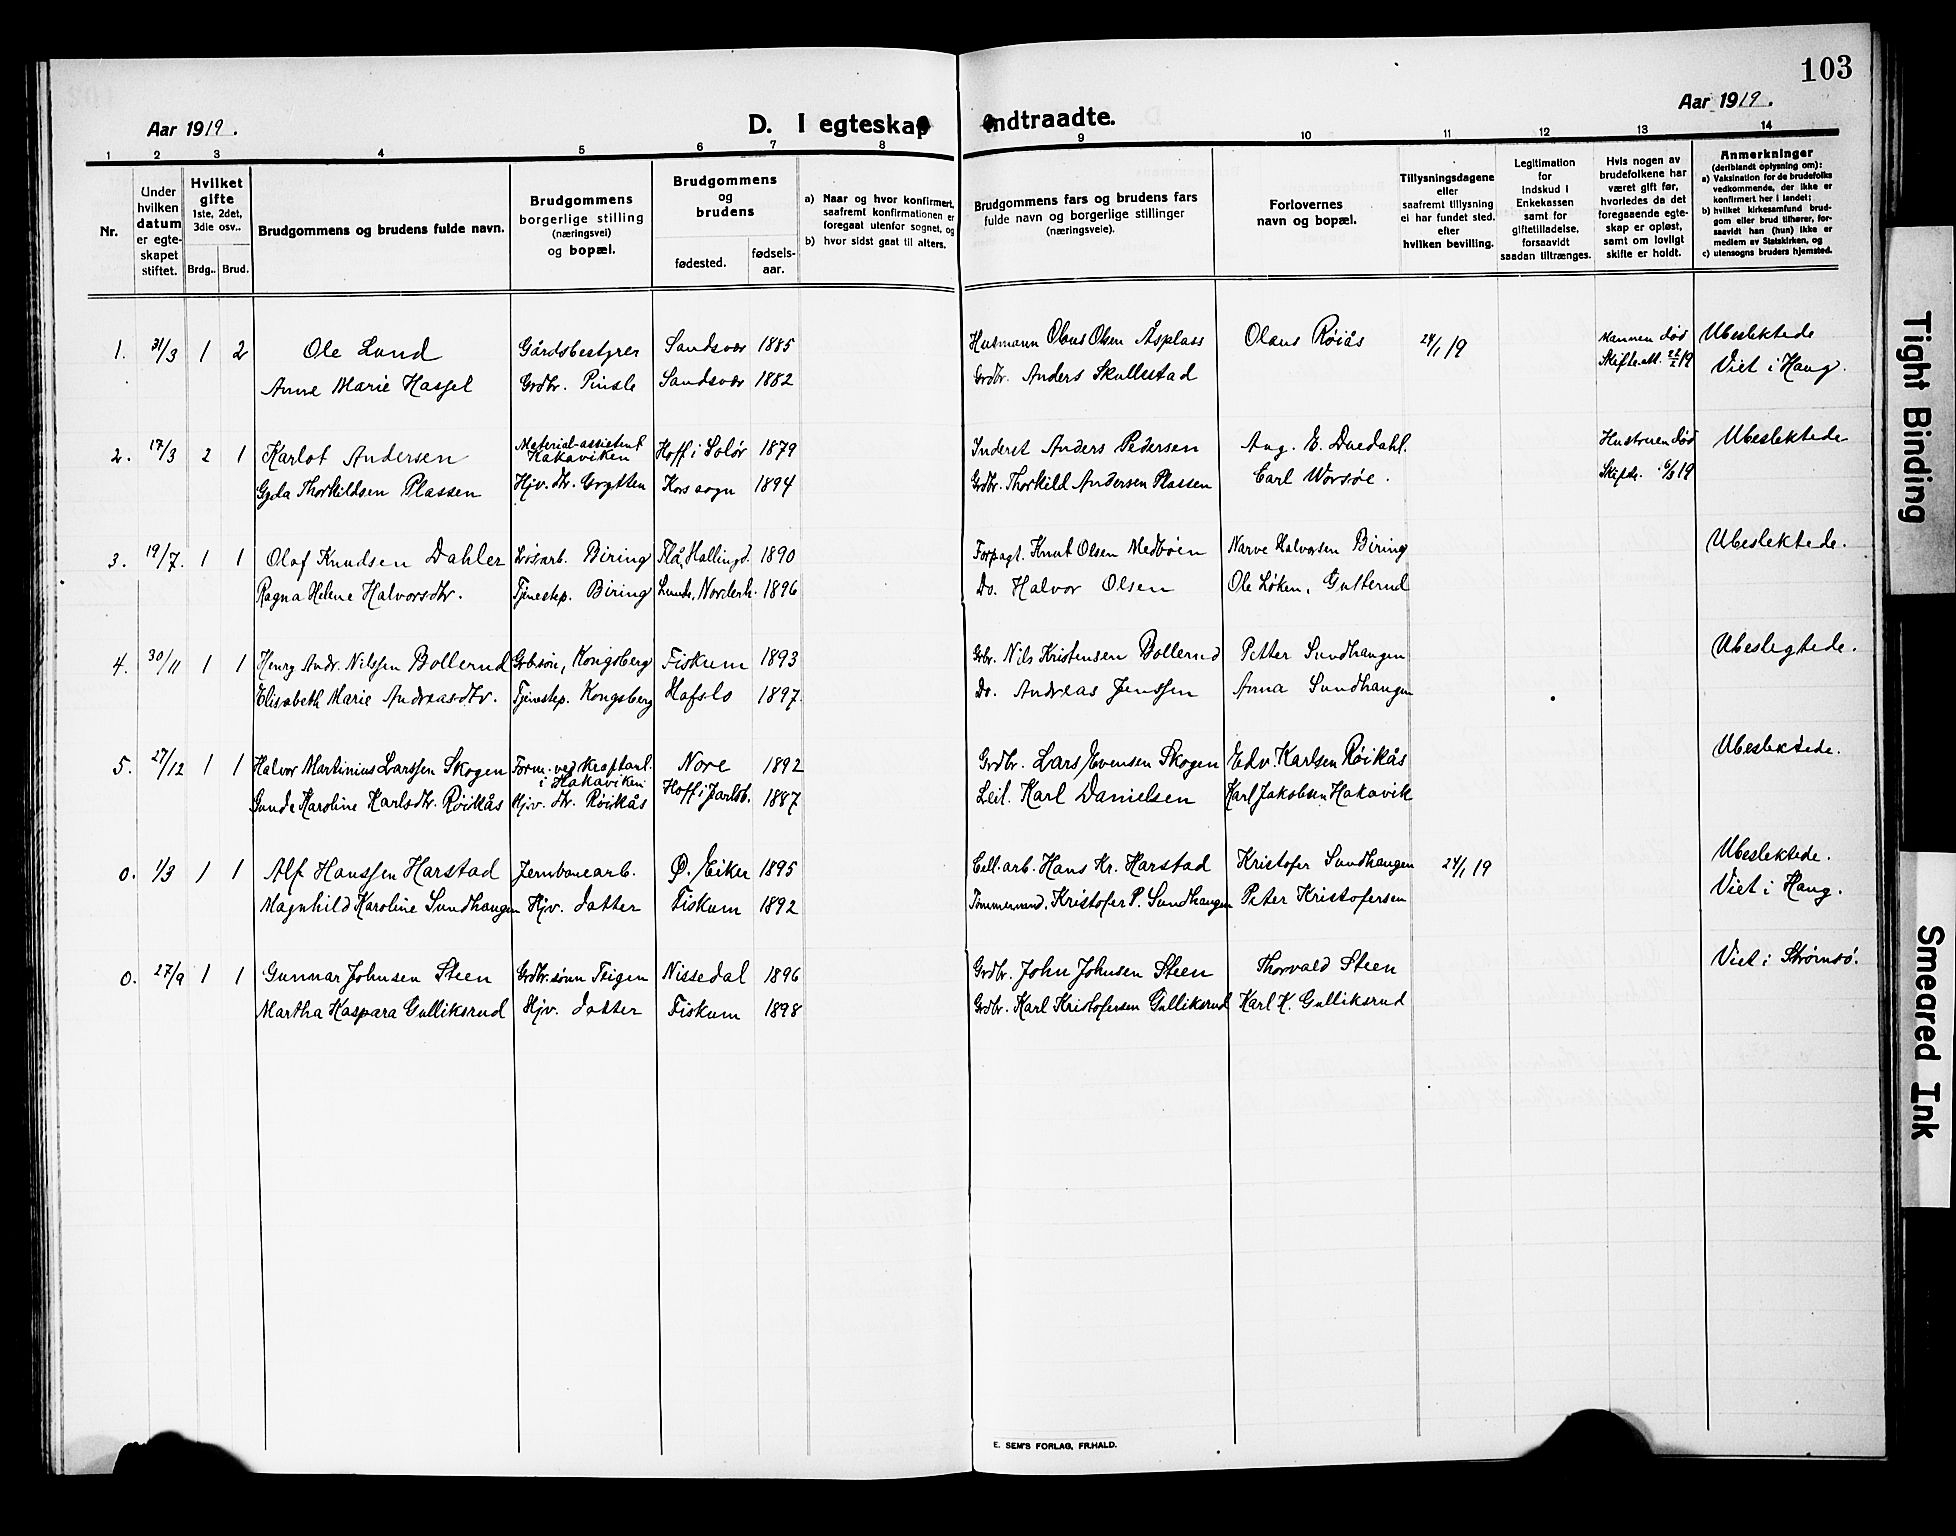 103
Aar 1919.
D. I egteskap indtraadte.
Aar 1919.
1 2 3 4 5 6 7 8 9 10 11 12 13 14
Nr.
Under hvilken datum er egteskapet stiftet.
Hvilket gifte 1ste, 2det, 3die osv..
Brdg.. Brud.
Brudgommens og brudens fulde navn.
Brudgommens borgerlige stilling (næringsvei) og bopæl.
Brudgommens og brudens
fødested.
fødsels-aar.
a) Naar og hvor konfirmert, saafremt konfirmationen er foregaat utenfor sognet, og
b) hvor sidst gaat til alters.
Brudgommens fars og brudens fars fulde navn og borgerlige stillinger (næringsveie).
Forlovernes navn og bopæl.
Tillysningsdagene eller saafremt tillysning ei har fundet sted. efter hvilken bevilling.
Legitimation for indskud i Enkekassen samt for giftetilladelse, forsaavidt saadan tiltrænges.
Hvis nogen av brudefolkene har været gift før, hvorledes da det foregaaende egteskap er opløst, samt om lovligt skifte er holdt.
Anmerkninger (deriblandt oplysning om):
a) Vaksination for de brudefolks vedkommende, der ikke er konfirmert her i landet;
b) hvilket kirkesamfund brudgom eller brud tilhører, forsaavidt han (hun) ikke er medlem av Statskirken, og
c) utensogns bruders hjemsted.
1. 31/3 1 2 Ole Lund Gårdsbestyrer Sandsvær 1885 Husmann Olaus Olsen Åsplass Olaus Røiås 24/1 19 Mannen død Ubeslektede
Anne Marie Hassel Grdbr. Pinsle Sandsvær 1882 Grdbr. Anders Skullestad Skifte.att. 22/2 19 Viet i Haug.
2. 17/3 2 1 Karlot Andersen Material-assistent Hakaviken Hoff i Solør 1879 Inderst Anders Pedersen Aug. E. Duedahl. Hustruen død Ubeslektede
Gyda Thorkildsen Plassen Hjv. dtr. Korssogn 1894 Grdbr. Thorkild Andersen Plassen Carl Worsøe. Skifte. 6/3 19
3. 19/7. 1 1 Olaf Knudsen Dahler Løsarb. Biring Flå, Hallingd. 1890 Forpagt. Knut Olsen Medbøen Narve Halvorsen Biring Ubeslektede.
Ragna Helene Halvorsdtr. Tjenestep. Biring Lunde, Norderh. 1896 Do. Halvor Olsen Ole Løken, Gutterud
4. 30/11 1 1 Henry Andr. Nilssen Bollerud Grbrsøn, Kongsberg Fiskum 1893 Grbr. Nils Kristensen Bollerud Petter Sundhaugen Ubeslegtede.
Elisabeth Marie Andreasdtr. Tjenestep. Kongsberg Hafslo 1897. Do. Andreas Jenssen Anna Sundhaugen
5. 27/12 1 1 Halvor Martinius Larssen Skogen Form. ved kraftanl. i Hakaviken Nore 1892 Grdbr. Lars Evensen Skogen Edv. Karlsen Røikås Ubeslektede.
Gunda Karoline Karlsdtr. Røikås Hjv. dtr. Røikås Hoff i Jarlsb. 1887 Leil. Karl Danielsen Karl Jakobsen Hakavik
0. 1/3 1 1 Alf Hanssen Harstad Jernbanearb. Ø. Eiker 1895 Cell.arb. Hans Kr. Harstad Kristofer Sundhaugen 24/1 19 Ubeslektede.
Magnhild Karoline Sundhaugen Hjv. datter Fiskum 1892 Tømmermand. Kristofer P. Sundhaugen Peter Kristofersen Viet i Haug.
0. 27/9 1 1 Gunnar Johnsen Steen Grdbr.sønn Teigen Nissedal 1896 Grdbr. John Johnsen Steen Thorvald Steen Viet i Strømsø.
Martha Kaspara Gulliksrud Hjv. datter Fiskum 1898 Grdbr. Karl Kristofersen Gulliksrud Karl K. Gulliksrud
E. SEM'S FORLAG, FR.HALD.
Tight Binding
Smeared Ink